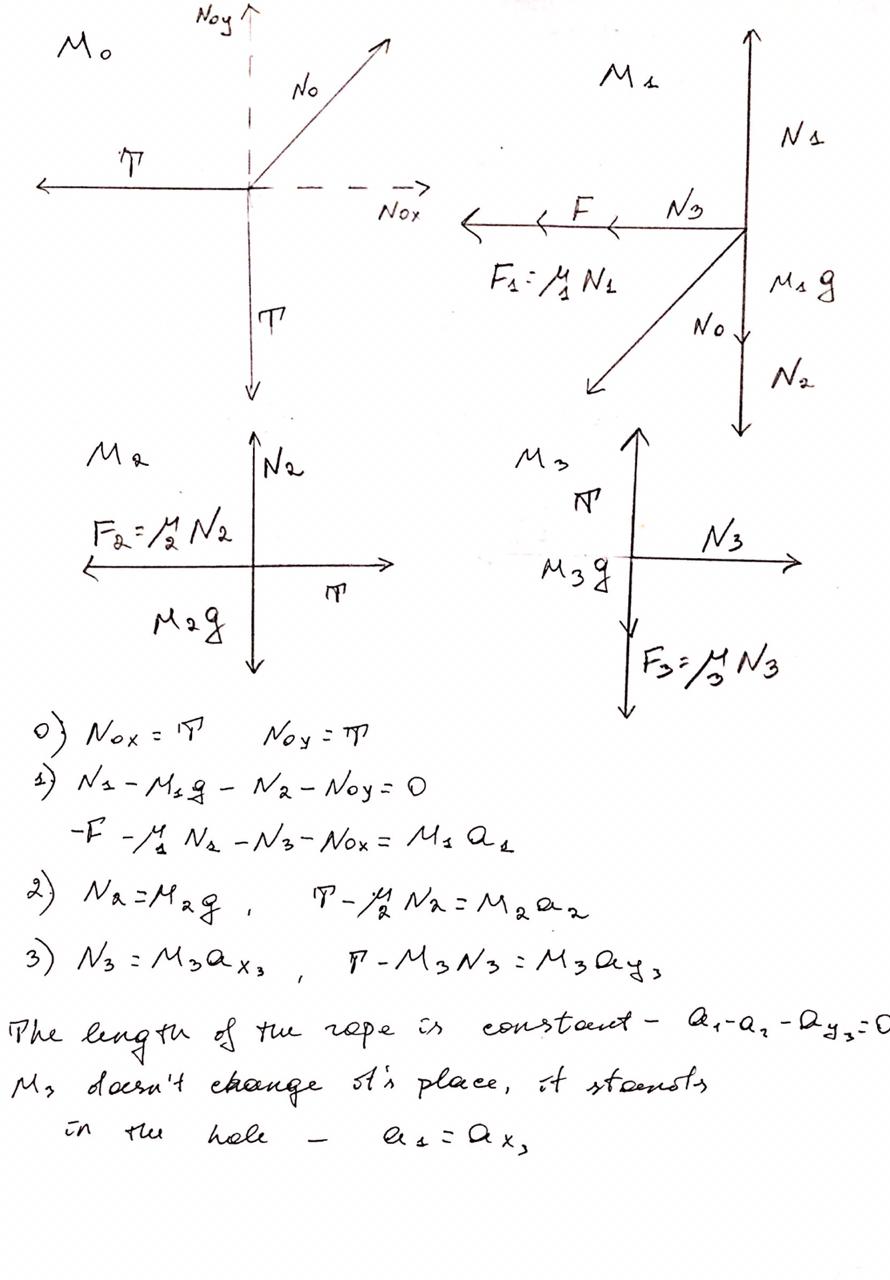 Noy
M0
No
T
Nox
T
M1
N1
F N3
F1 = μ1 N1
M1 g
No
N2
M2
N2
F2 = μ2 N2
T
M2g
M3
T
N3
M3g
F3 = μ3 N3
0) Nox = T Noy = T
1) N1 - M1g - N2 - Noy = 0
-F - μ1 N1 - N3 - Nox = M1 a1
2) N2 = M2g , T - μ2 N2 = M2 a2
3) N3 = M3 ax3 , T - M3 N3 = M3 ay3
The length of the rope is constant - a1 - a2 - ay3 = 0
M3 doesn't change it's place, it stands
in the hole - a1 = ax3